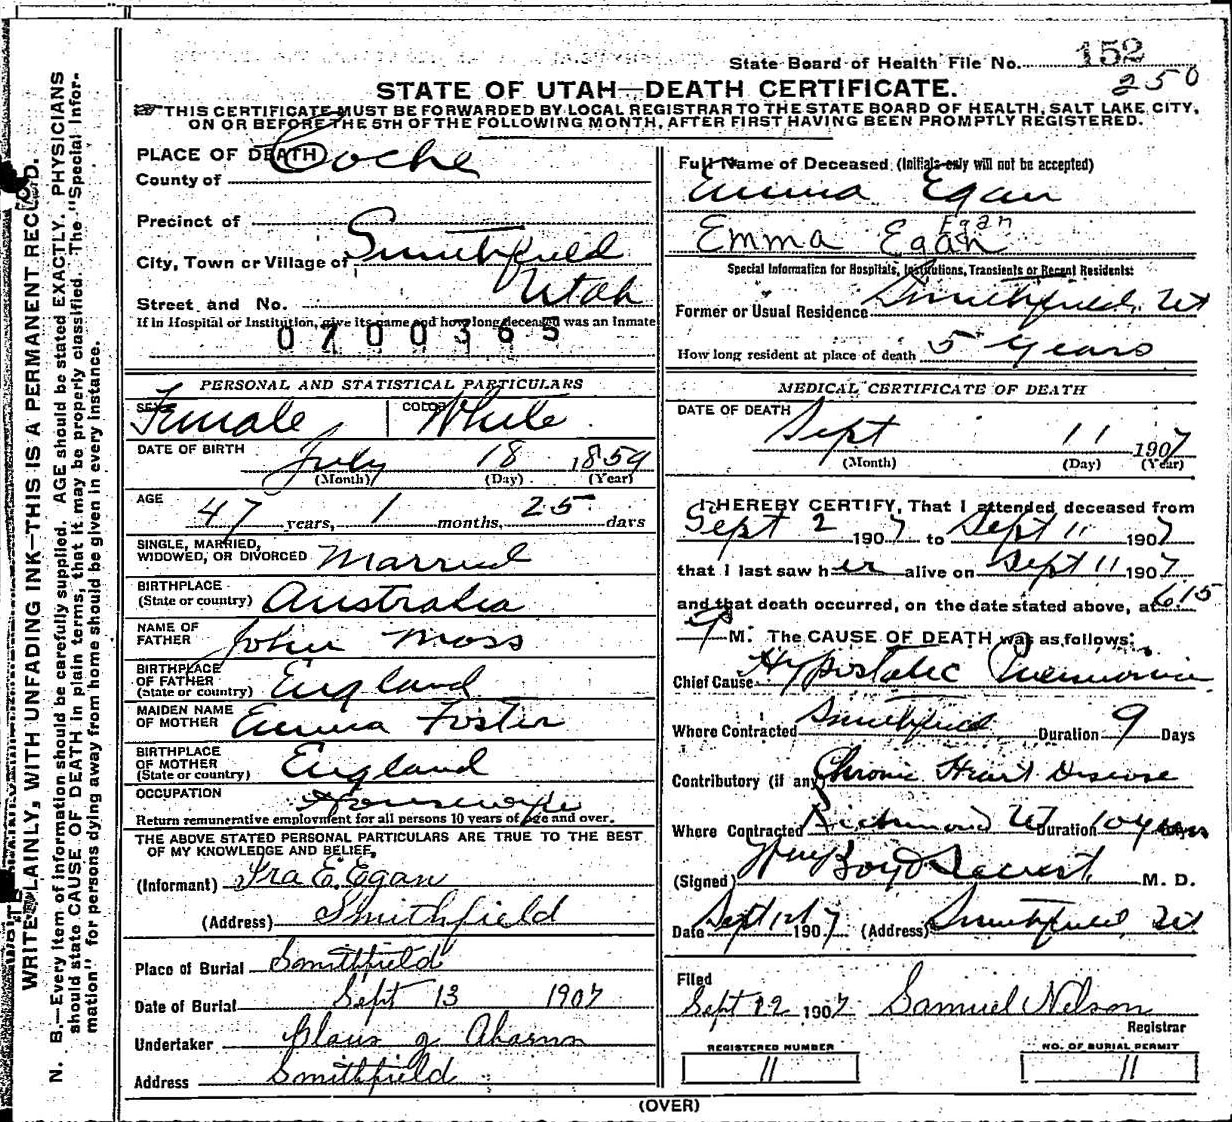 State Board of Health File No. 152
250
STATE OF UTAH—DEATH CERTIFICATE.
THIS CERTIFICATE MUST BE FORWARDED BY LOCAL REGISTRAR TO THE STATE BOARD OF HEALTH, SALT LAKE CITY,
ON OR BEFORE THE 5TH OF THE FOLLOWING MONTH, AFTER FIRST HAVING BEEN PROMPTLY REGISTERED.
WRITE PLAINLY, WITH UNFADING INK—THIS IS A PERMANENT RECORD.
N. B.—Every item of information should be carefully supplied. AGE should be stated EXACTLY. PHYSICIANS
should state CAUSE OF DEATH in plain terms, that it may be properly classified. The "Special Infor-
mation" for persons dying away from home should be given in every instance.
PLACE OF DEATH
County of Cache
Precinct of
City, Town or Village of Smithfield
Street and No. Utah
If in Hospital or Institution, give its name and how long deceased was an Inmate
0700365
PERSONAL AND STATISTICAL PARTICULARS
SEX Female COLOR White
DATE OF BIRTH July 18 1859
(Month) (Day) (Year)
AGE 47 years, 1 months, 25 days
SINGLE, MARRIED,
WIDOWED, OR DIVORCED Married
BIRTHPLACE
(State or country) Australia
NAME OF
FATHER John Moss
BIRTHPLACE
OF FATHER
(State or country) England
MAIDEN NAME
OF MOTHER Emma Foster
BIRTHPLACE
OF MOTHER
(State or country) England
OCCUPATION Housewife
Return remunerative employment for all persons 10 years of age and over.
THE ABOVE STATED PERSONAL PARTICULARS ARE TRUE TO THE BEST
OF MY KNOWLEDGE AND BELIEF,
(Informant) Ira E. Egan
(Address) Smithfield
Place of Burial Smithfield
Date of Burial Sept 13 1907
Undertaker
Address Smithfield
Full Name of Deceased (Initials only will not be accepted)
Emma Egan
Egan
Emma Egan
Special Information for Hospitals, Institutions, Transients or Recent Residents:
Former or Usual Residence Smithfield, Ut
How long resident at place of death 5 years
MEDICAL CERTIFICATE OF DEATH
DATE OF DEATH Sept 11 1907
(Month) (Day) (Year)
I HEREBY CERTIFY, That I attended deceased from
Sept 2 1907 to Sept 11 1907
that I last saw her alive on Sept 11 1907
and that death occurred, on the date stated above, at 6.15
P M. The CAUSE OF DEATH was as follows:
Chief Cause Hypostatic Pneumonia
Where Contracted Smithfield Duration 9 Days
Contributory (if any) Chronic Heart Disease
Where Contracted Richmond Ut Duration 10 years Days
(Signed) Wm Boyd M. D.
Date Sept 12 1907 (Address) Smithfield, Ut
Filed
Sept 12 1907 Samuel Nelson
Registrar
REGISTERED NUMBER
11
NO. OF BURIAL PERMIT
11
(OVER)